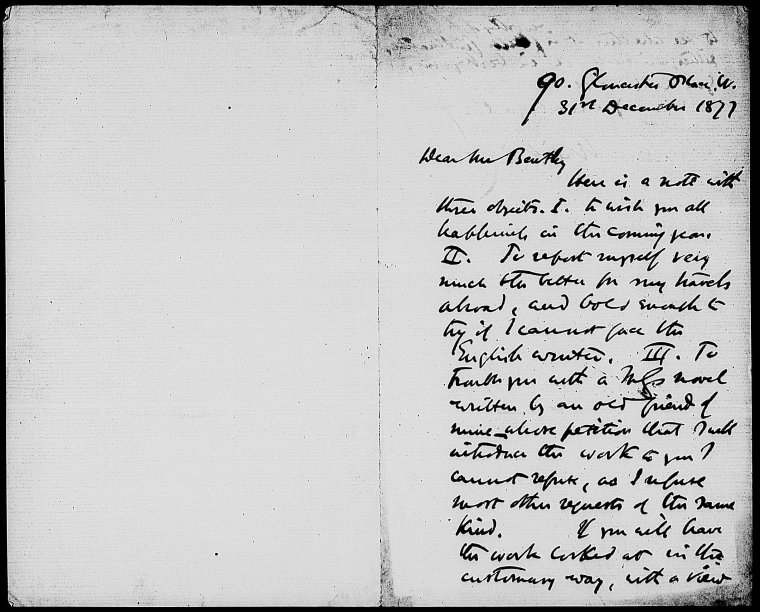 90. Gloucester Place. W.
31st December 1877
Dear Mr Bentley
Here is a note with
three objects. I. to wish you all
happiness in the coming year.
II. To report myself very
much the better for my travels
abroad, and bold enough to
try if I cannot face the
English winter. III. To
trouble you with a MS novel
written by an old friend of
mine – whose petition that I will
introduce the work to you I
cannot refuse, as I refuse
most other requests of the same
kind. If you will have
the work looked at in the
customary way, with a view